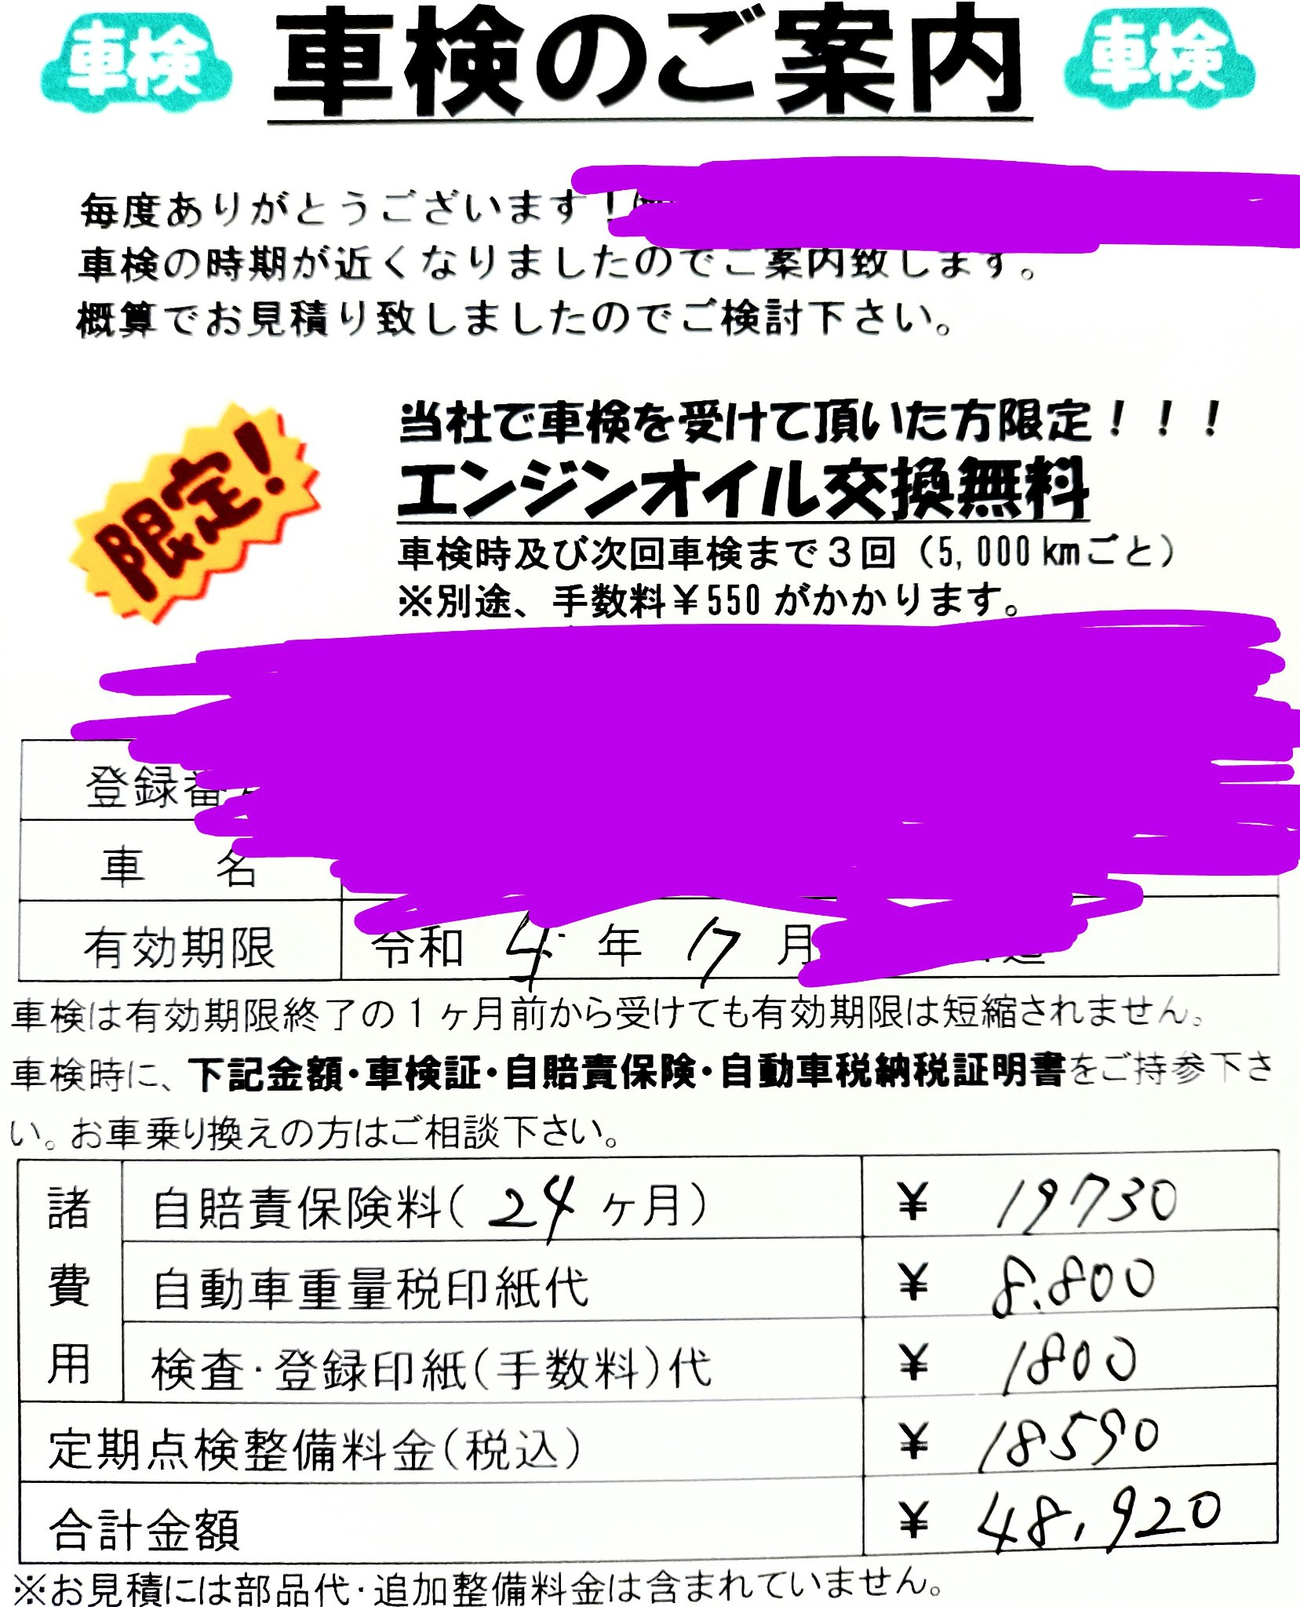 車検 車検のご案内 車検
毎度ありがとうございます！
車検の時期が近くなりましたのでご案内致します。
概算でお見積り致しましたのでご検討下さい。
限定!
当社で車検を受けて頂いた方限定！！！
エンジンオイル交換無料
車検時及び次回車検まで３回（5,000kmごと）
※別途、手数料￥550がかかります。
登録番
車 名
有効期限 令和 4 年 7 月
車検は有効期限終了の１ヶ月前から受けても有効期限は短縮されません。
車検時に、下記金額・車検証・自賠責保険・自動車税納税証明書をご持参下さ
い。お車乗り換えの方はご相談下さい。
諸費用
自賠責保険料(24ヶ月) ¥ 19730
自動車重量税印紙代 ¥ 8.800
検査・登録印紙(手数料)代 ¥ 1800
定期点検整備料金(税込) ¥ 18590
合計金額 ¥ 48,920
※お見積には部品代・追加整備料金は含まれていません。